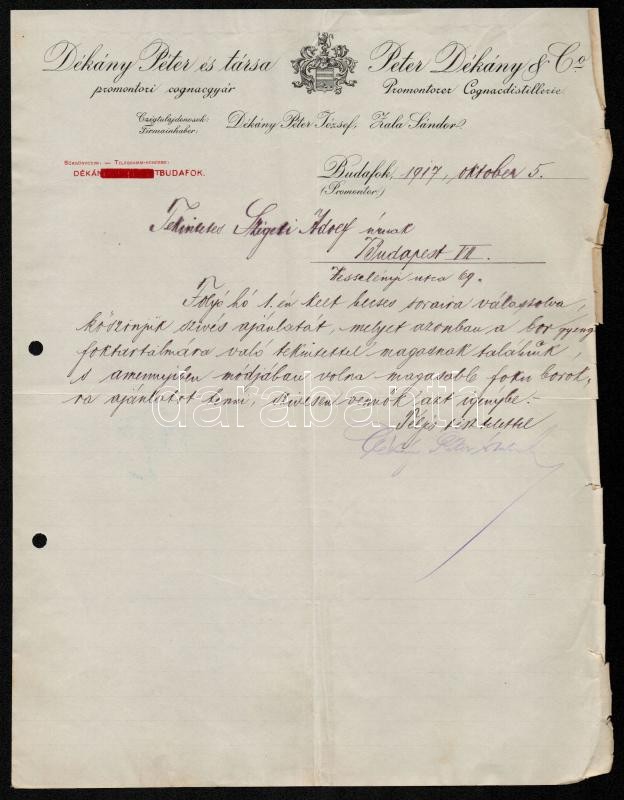 Dékány Péter és társa
promontori cognacgyár
Peter Dékány & Co
Promontorer Cognacdistillerie
Czégtulajdonosok:
Firmainhaber:
Dékány Péter József, Zala Sándor.
Sürgönyczim: — Telegramm-Adresse:
DÉKÁN BUDAFOK.
Budafok, 1917, oktober 5.
(Promontor)
Tekintetes Szigeti Adolf úrnak
Budapest VII.
Wesselényi utca 69.
Folyó hó 1.én kelt becses soraira válaszolva,
köszönjük szives ajánlatát, melyet azonban, a bor gyeng
foktartalmára való tekintettel magasnak találunk,
s amennyiben módjában volna magasabb foku borok,
ra ajánlatot tenni, szivesen vennők azt igénybe.-
Teljes tisztelettel
Dékány Péter és társa
darabanth